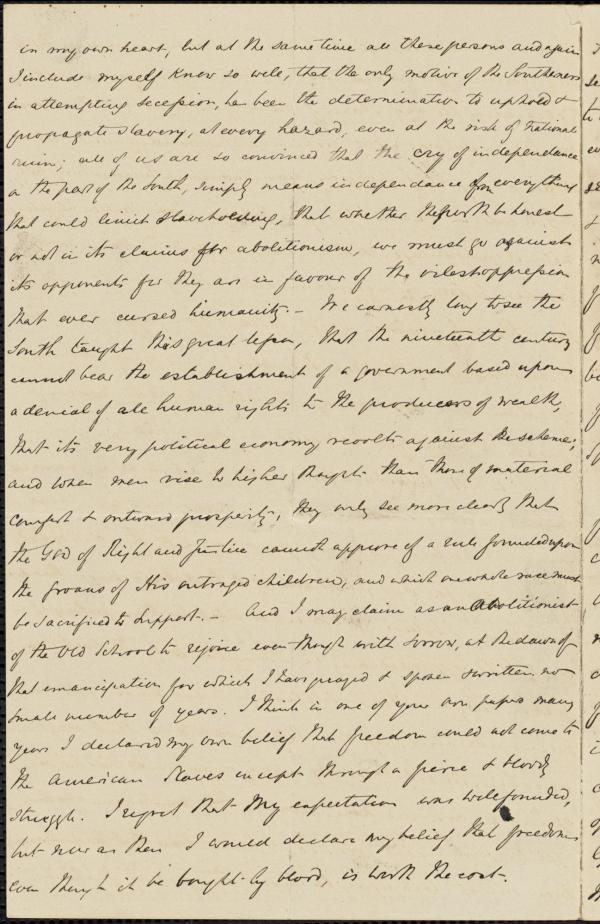 in my own heart, but at the same time all these persons and again
I include myself know so well, that the only motive of the Southerners
in attempting secession, has been the determination to uphold &
propagate Slavery, at every hazard, even at the risk of national
ruin; all of us are so convinced that the cry of independance
on the part of the South, simply means independance from everything
that could limit slaveholding, that whether the North be honest
or not in its claims for abolitionism, we must go against
its opponents for they are in favour of the vilest oppression
that ever cursed humanity. - We earnestly long to see the
South taught this great lesson, that the nineteenth century
cannot bear the establishment of a government based upon
a denial of all human rights to the producers of wealth,
that its very political economy revolts against the scheme;
and when men rise to higher thoughts than those of material
comfort & outward prosperity, they only see more clearly that
the God of Right and Justice cannot approve of a rule founded upon
the groans of His outraged children, and which one whole race must
be sacrificed to support. - And I may claim as an Abolitionist
of the Old School to rejoice even though with sorrow, at the dawn of
that emancipation for which I have prayed & spoken & written no
small number of years. I think in one of your own papers many
years I declared my own belief that freedom could not come to
the American Slaves except through a fierce & bloody
struggle. I regret that my expectation was well founded,
but now as then I would declare my belief that freedom
even though it be bought by blood, is worth the cost.